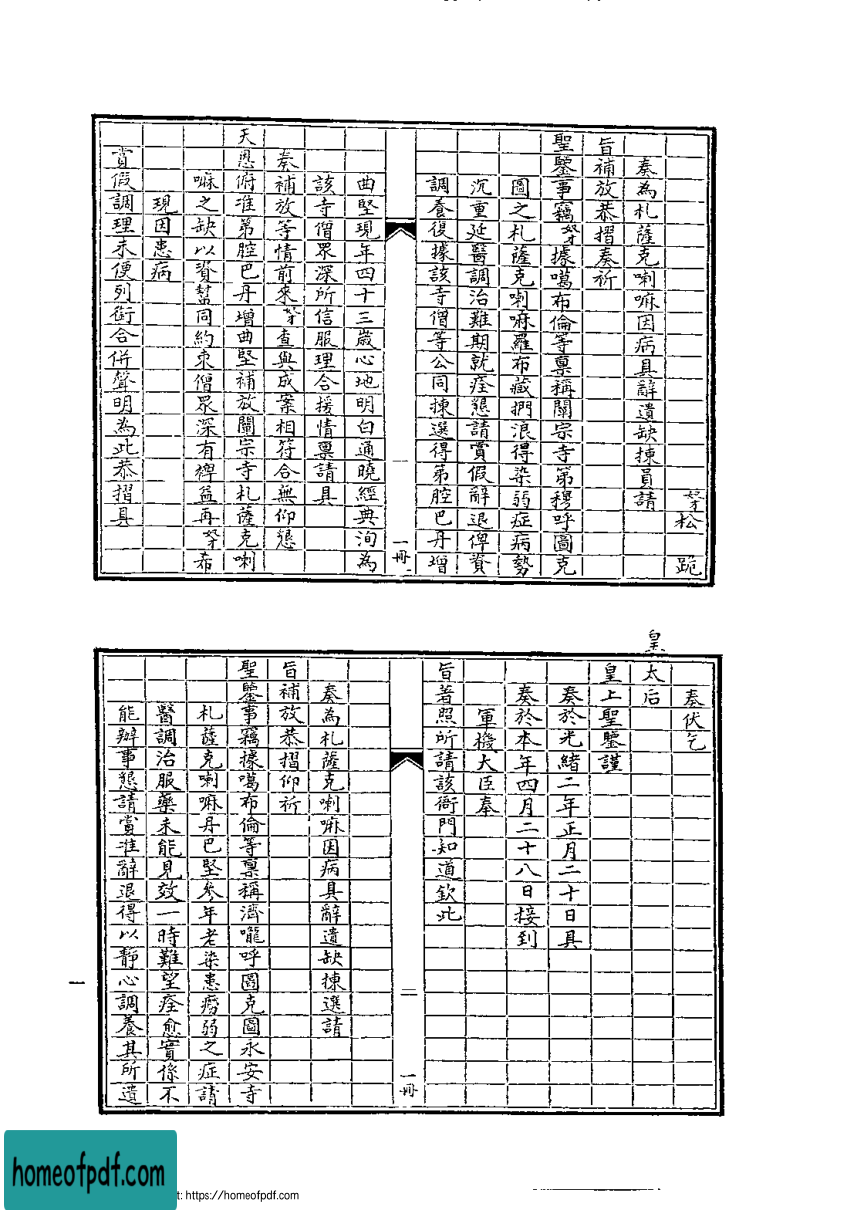 奴才松 跪
奏為札薩克喇嘛因病具辭遺缺揀員請
旨補放恭摺奏祈
聖鑒事竊奴才據噶布倫等稟稱闡宗寺第穆呼圖克
圖之札薩克喇嘛羅布藏捫浪得染弱症病勢
沉重延醫調治難期就痊懇請賞假辭退俾資
調養復據該寺僧等公同揀選得第腔巴丹增
一
一冊
曲堅現年四十三歲心地明白通曉經典洵為
該寺僧眾深所信服理合援情稟請具
奏補放等情前來奴才查與成案相符合無仰懇
天恩俯准第腔巴丹增曲堅補放闡宗寺札薩克喇
嘛之缺以資幫同約束僧眾深有裨益再奴才希
現因患病
賞假調理未便列銜合併聲明為此恭摺具
奏伏乞
皇太后
皇上聖鑒謹
奏於光緒二年正月二十日具
奏於本年四月二十八日接到
軍機大臣奉
旨著照所請該衙門知道欽此
二
一冊
奏為札薩克喇嘛因病具辭遺缺揀選請
旨補放恭摺仰祈
聖鑒事竊據噶布倫等稟稱濟嚨呼圖克圖永安寺
札薩克喇嘛丹巴堅參年老染患癆弱之症請
醫調治服藥未能見效一時難望痊愈實係不
能辦事懇請賞准辭退得以靜心調養其所遺
一
homeofpdf.com
t: https://homeofpdf.com